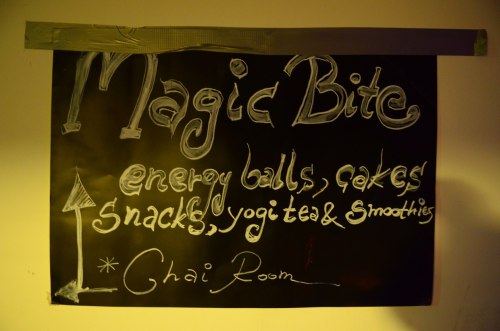 Magic Bite
energy balls, cakes
snacks, yogi tea & smoothies
* Chai Room